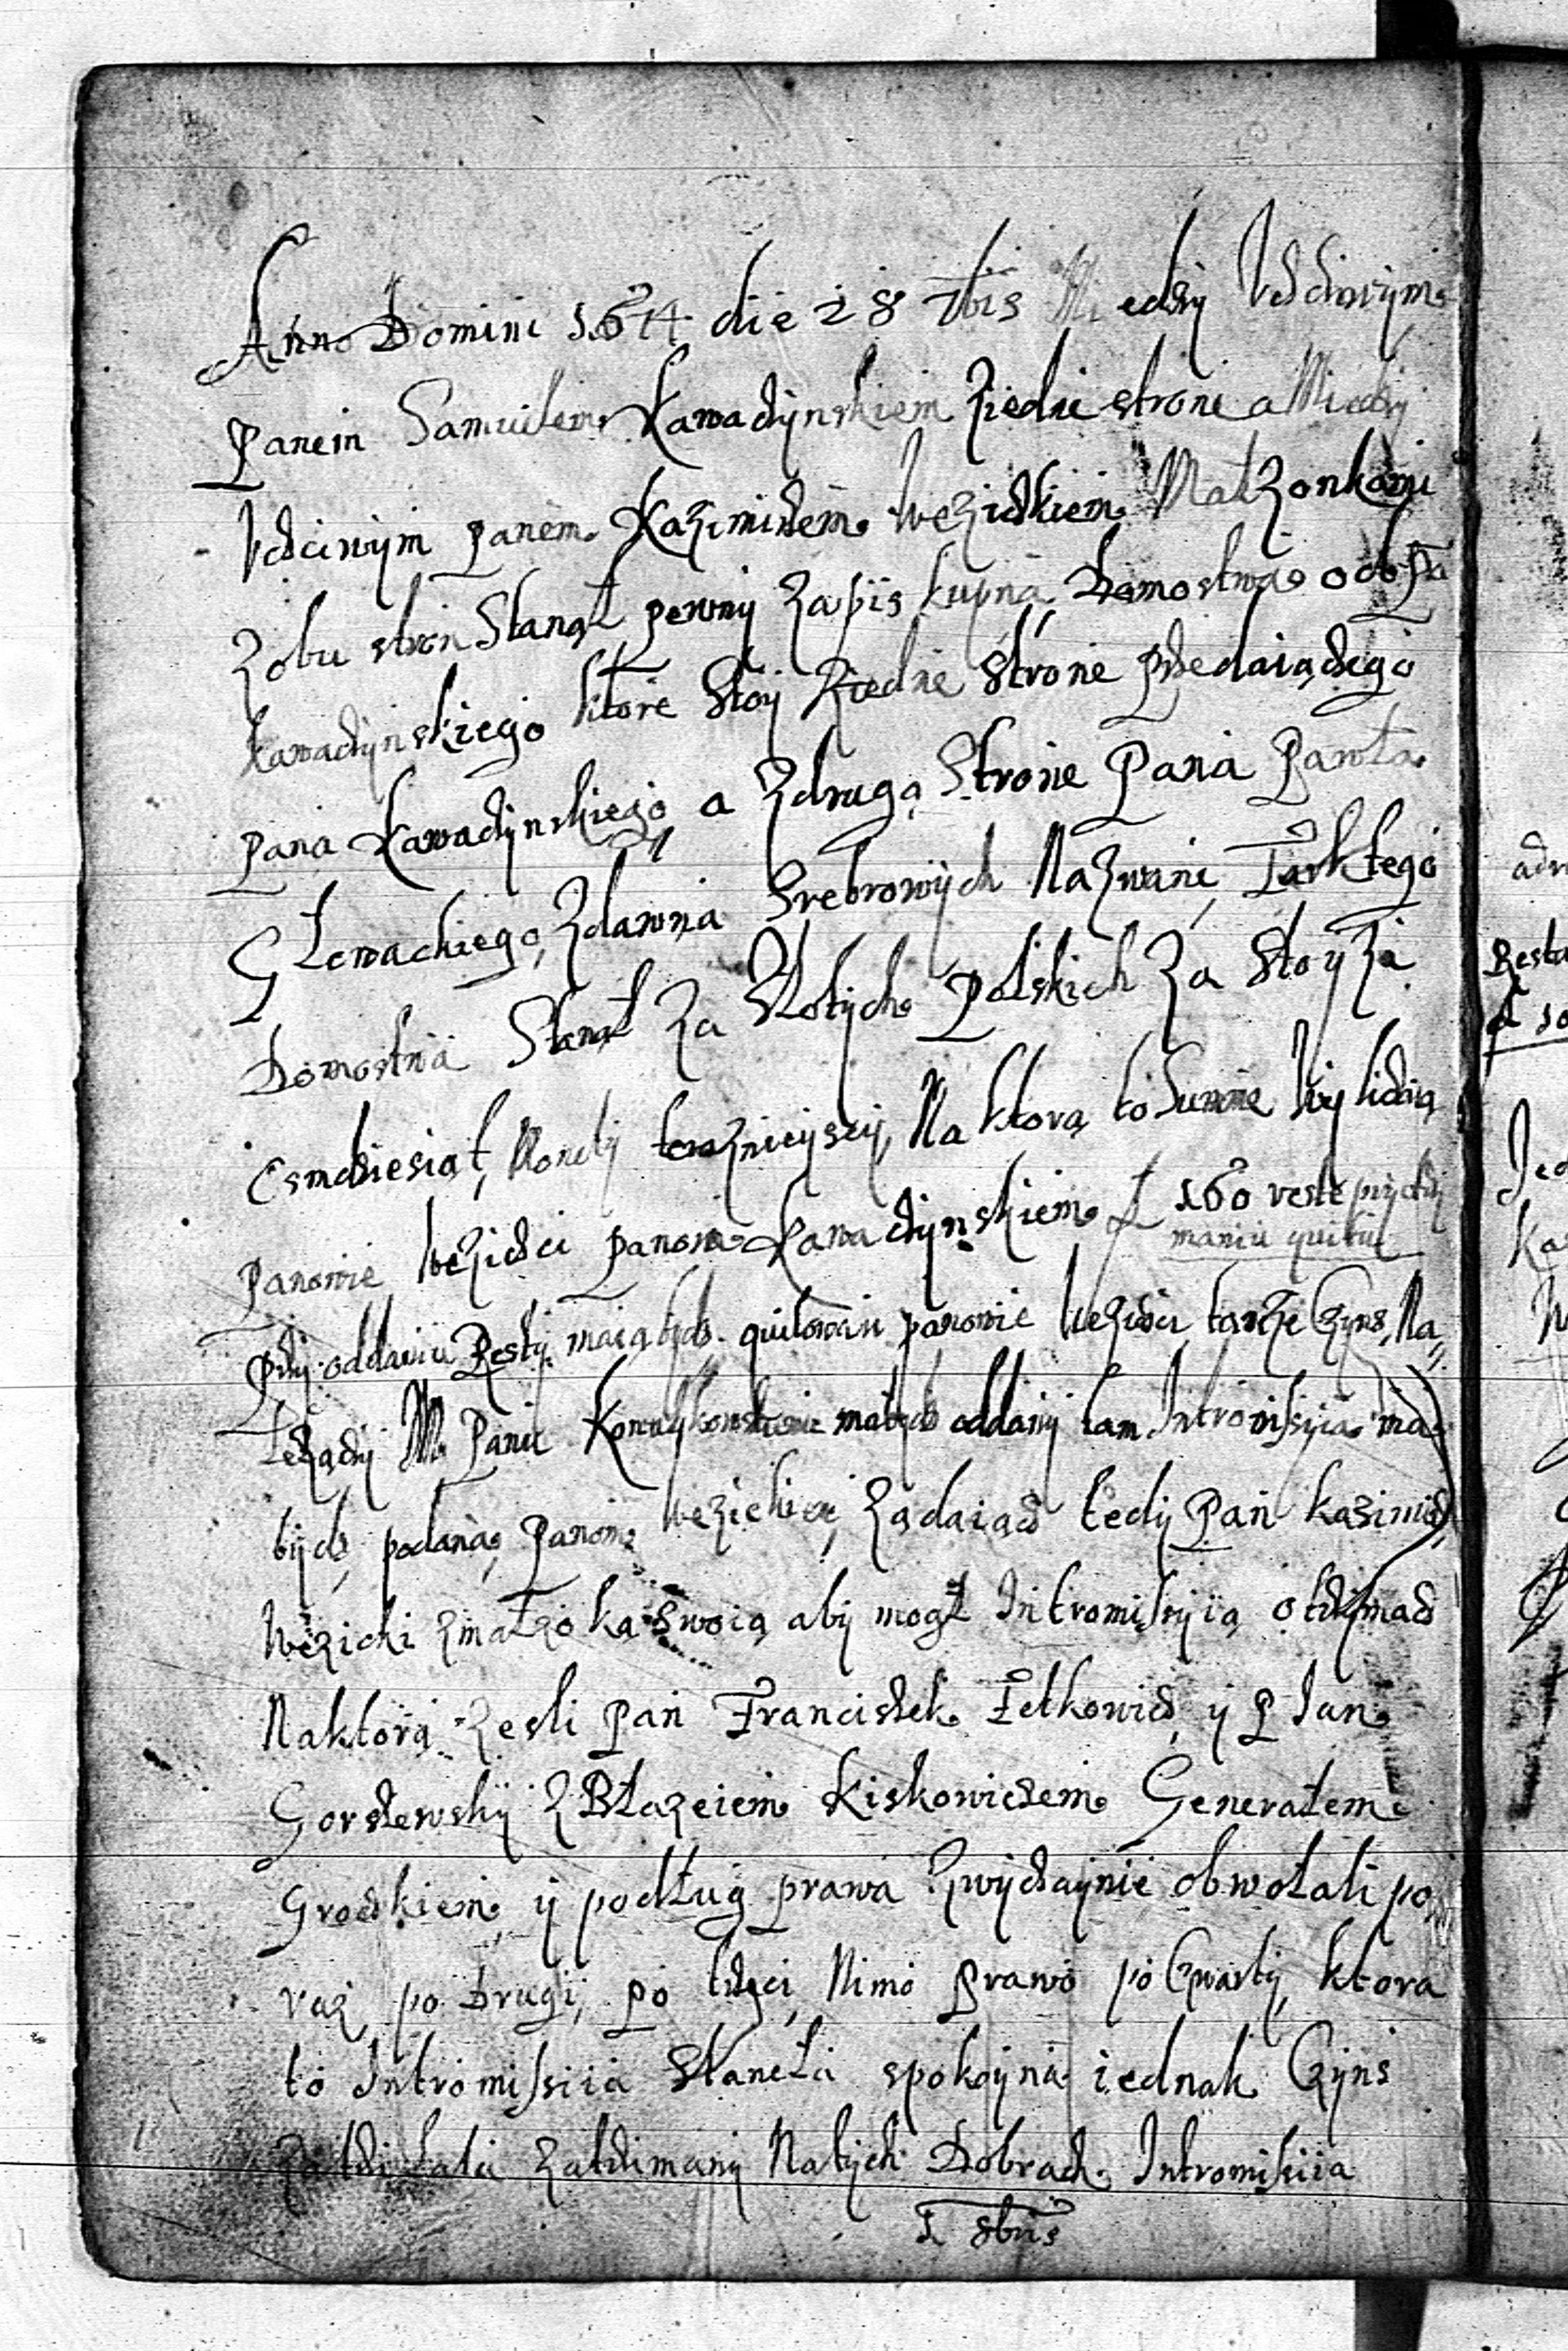 Anno Domini 1674 die 28 7bris Miedzy Vczciwym
Panem Samuelem Kawaczynskiem Ziedne strone a Miedzy
Vczciwym panem Kazimirzem Wezickiem Małzonkami
Zobu stron Stanął pewny Zapis kupna Domostwa od Pa
Kawaczynskiego ktore Stoy Ziedne Strone przedaiączego
pana Kawaczynskiego a Zdrugą Strone Pana Pawła
Głowackiego, Zdawna Srebrowych Nazwane, Tark tego
Domostwa Stanął Za Złotych Polskich Za Sto y Za
Osmdziesiąt, Monety teraznieyszy, Na ktorą to Summe Wyliczaią
Panowie Wezicci panom Kawaczynskiem f 160 reste przy
maniu
przy oddaniu Resty maią bydz quitowani panowie Wezicci takze Czyns Na,,
lezączy Mci Paniu oddany tam Intromissyia ma
bydz podana Panom Wezickiem, Ządaiącz tedy Pan kazimirz
Wezicki zmałzoką swoią aby mogł Intromissyią otrzymacz
Naktorą zesli Pan Franciszek Fełkowicz y P Ian
Gorszewsky Z Błazeiem Kiskowiczem Generałem
Grodzkiem y podług prawa Zwyczaynie obwołali po
raz po Drugi, po trzeci, Nimo prawo po Czwarty, ktora
to Intromissiia Staneła spokoyna iednak Czyns
zatrzymany Natych Dobrach Intromissiia
I 8bris
adr
Resta
Jed
Ka